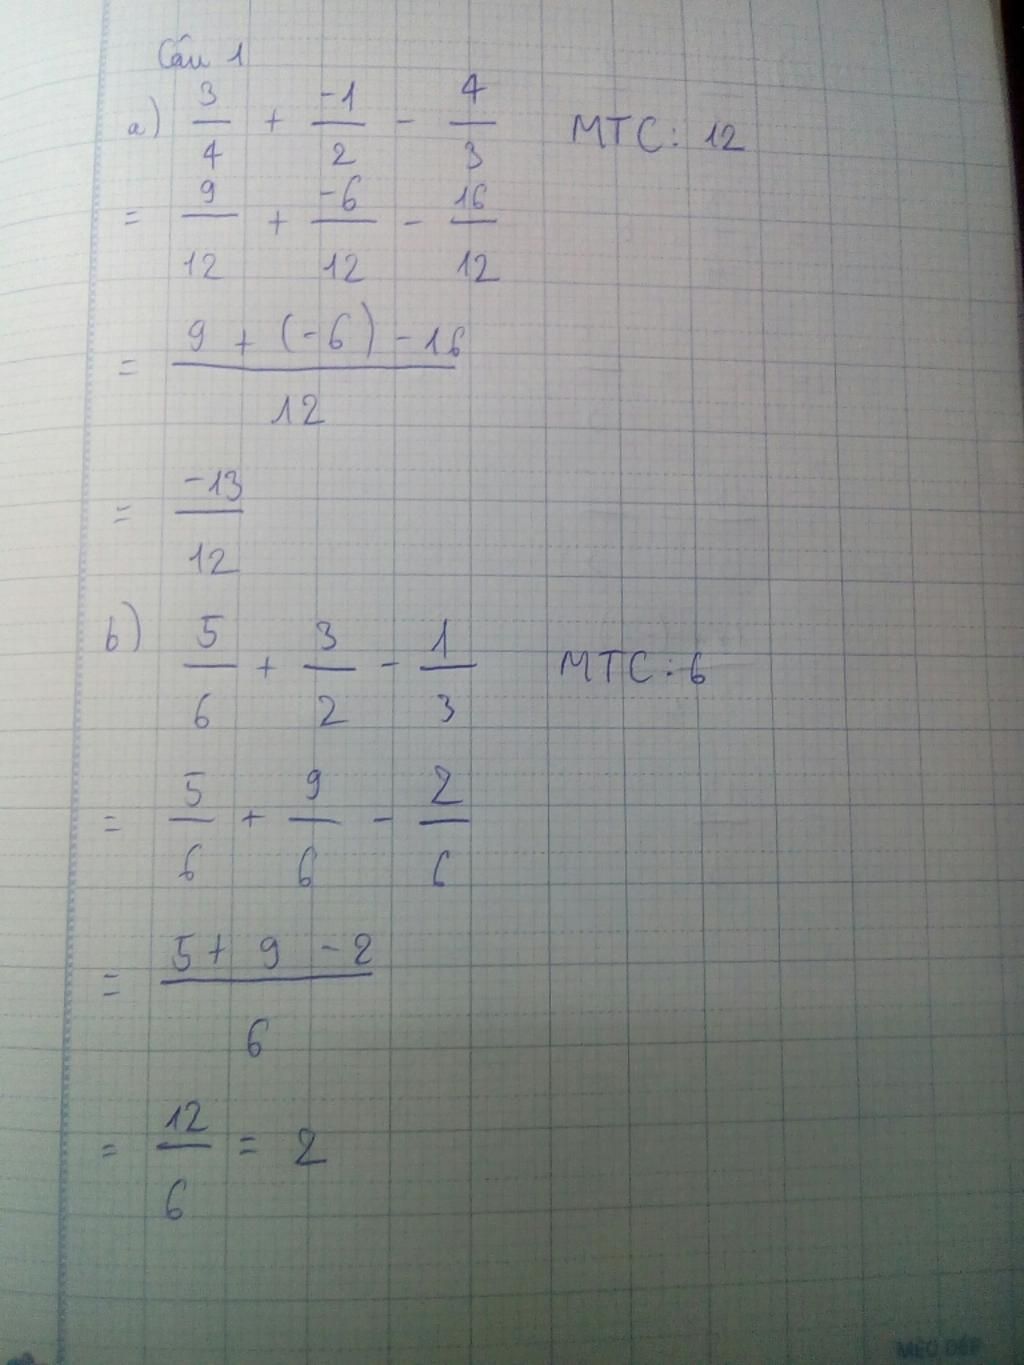 Câu 1
a) 3/4 + -1/2 - 4/3 MTC: 12
= 9/12 + -6/12 - 16/12
= 9 + (-6) - 16 / 12
= -13/12
b) 5/6 + 3/2 - 1/3 MTC: 6
= 5/6 + 9/6 - 2/6
= 5 + 9 - 2 / 6
= 12/6 = 2